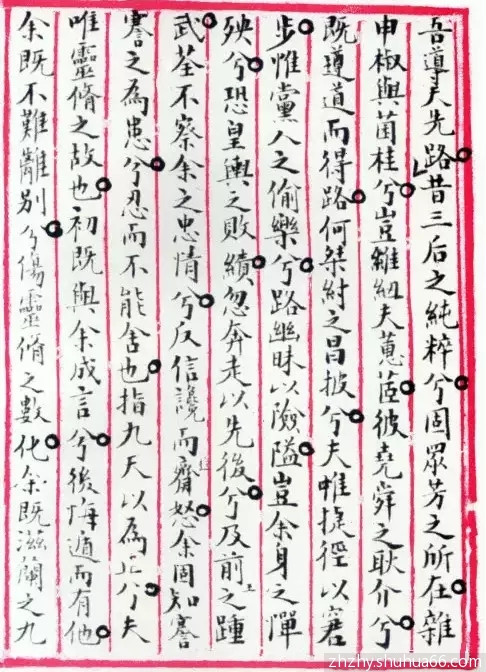 吾導夫先路昔三后之純粹兮固眾芳之所在雜
申椒與菌桂兮豈維紉夫蕙茝彼堯舜之耿介兮
既遵道而得路何桀紂之昌披兮夫惟捷徑以窘
步惟黨人之偷樂兮路幽昧以險隘豈余身之憚
殃兮恐皇輿之敗績忽奔走以先後兮及前王之踵
武荃不察余之忠情兮反信讒而齌怒余固知謇
謇之為患兮忍而不能舍也指九天以為正兮夫
唯靈脩之故也初既與余成言兮後悔遁而有他
余既不難離別兮傷靈脩之數化余既滋蘭之九
zhzhy.shuhua66.com